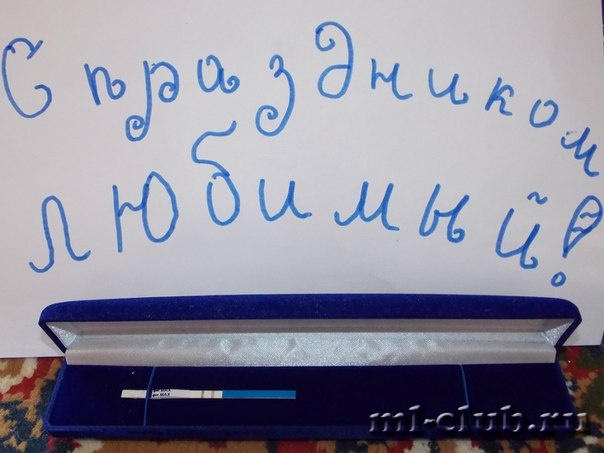 С праздником
любимый!
ml-club.ru